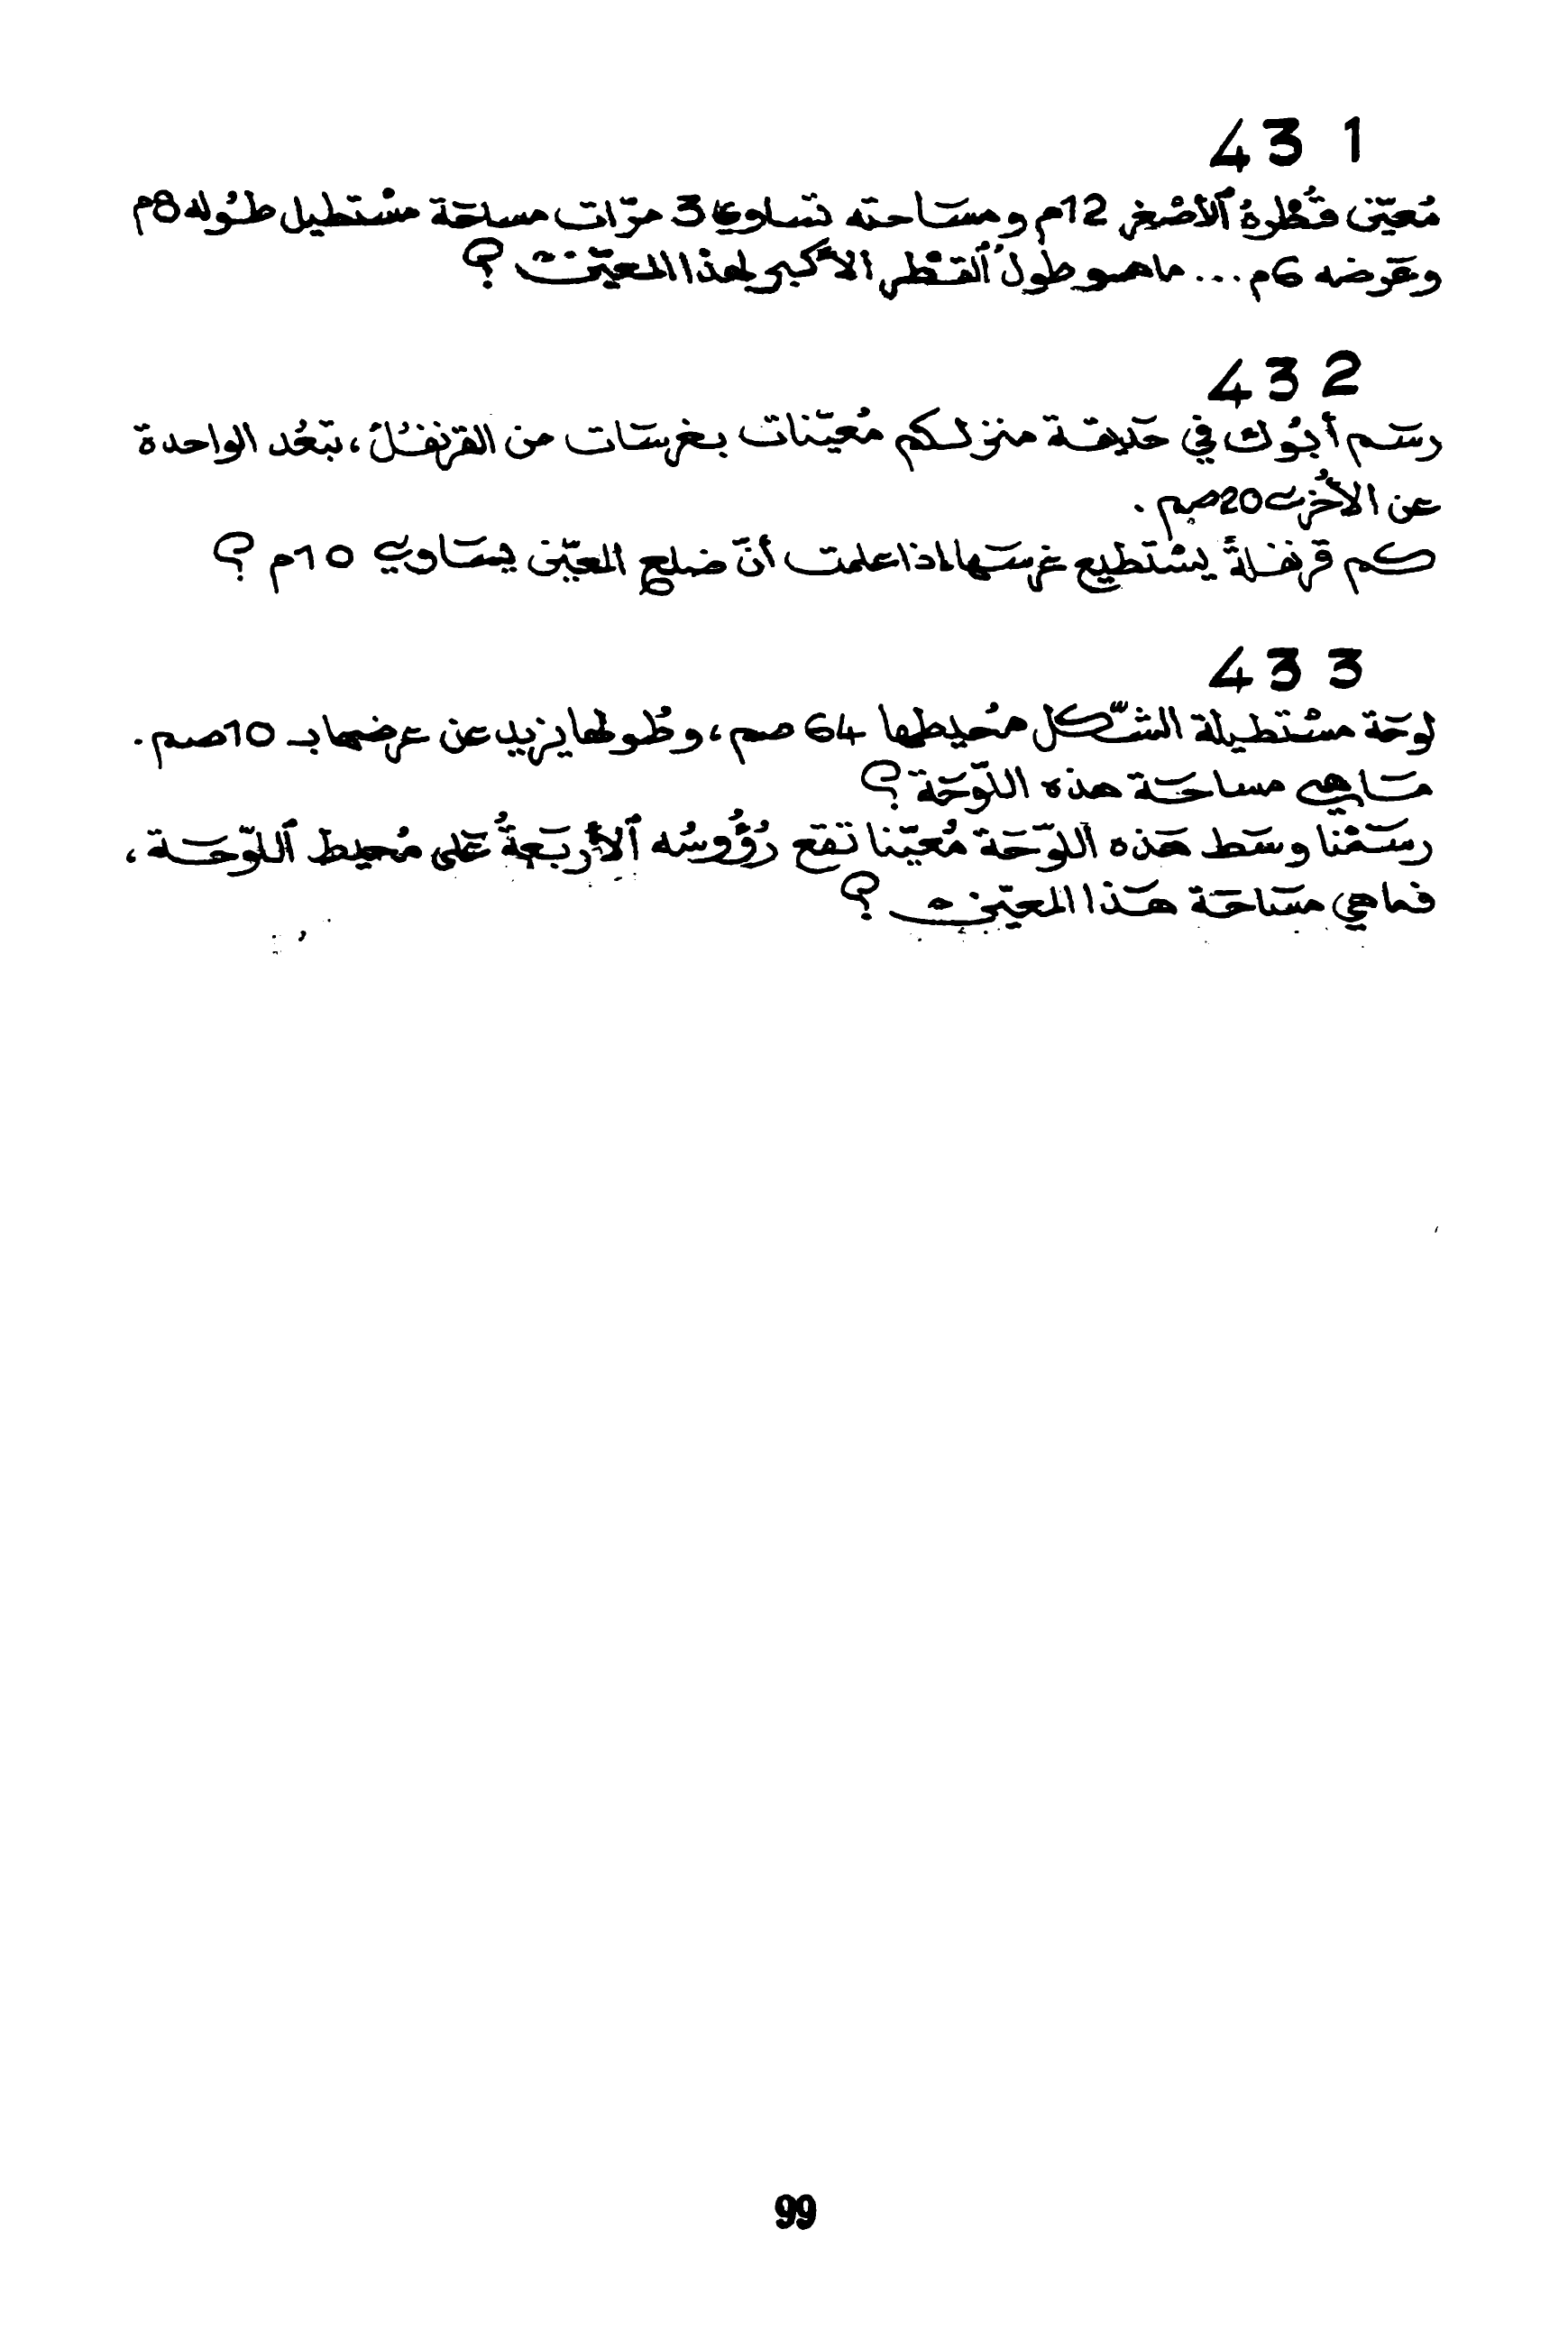 431
مُعيّن قُطْرهُ ٱلأصْغر 12م ومسَاحته تساوي 3 مرّات مساحَة مسْتطيل طُوله 8م
وعَرضه 6م... ما هو طولُ ٱلقُطْر الأكبر لهذا المعيّن ؟
432
رسَم أبُوك في حَديقة منزلكم مُعيّنات بغرسَات من القرنفُل، تبَعُد الواحدة
عن الأخْرى 20صم .
كم قرنفلةً يسْتطيع غرسَها إذا علمت أنّ ضلع المعيّن يسَاوي 10م ؟
433
لوحَة مسْتطيلة الشّكل مُحيطها 64 صم، وطُولها يزيد عن عرضها بـ 10صم.
مَا هي مساحَة هذه اللّوحَة ؟
رسَمْنا وسَط هَذه اللّوحَة مُعيّنا تقع رُؤُوسُه ٱلأربَعةُ عَلى مُحيط ٱللّوحَة،
فما هي مسَاحَة هَذا المعيّن ؟
99